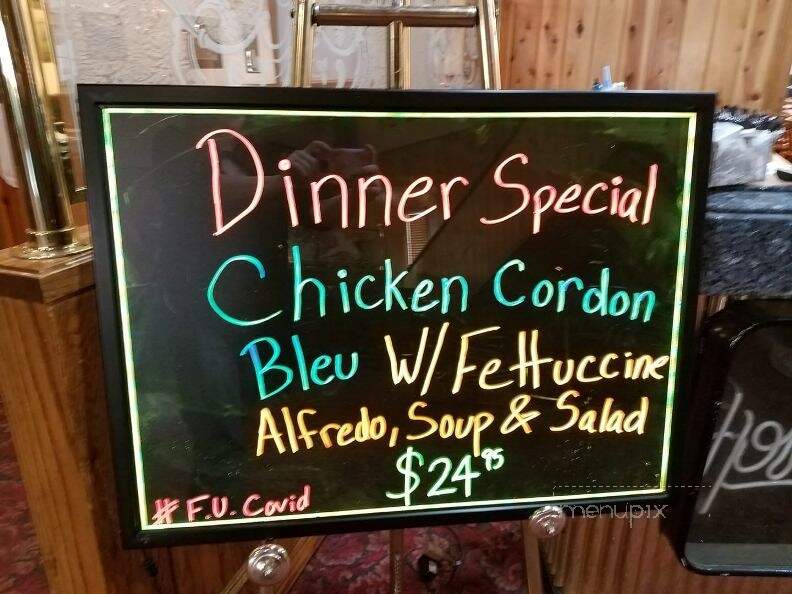 Dinner Special
Chicken Cordon
Bleu W/ Fettuccine
Alfredo, Soup & Salad
$24.95
# F.U. Covid
menupix